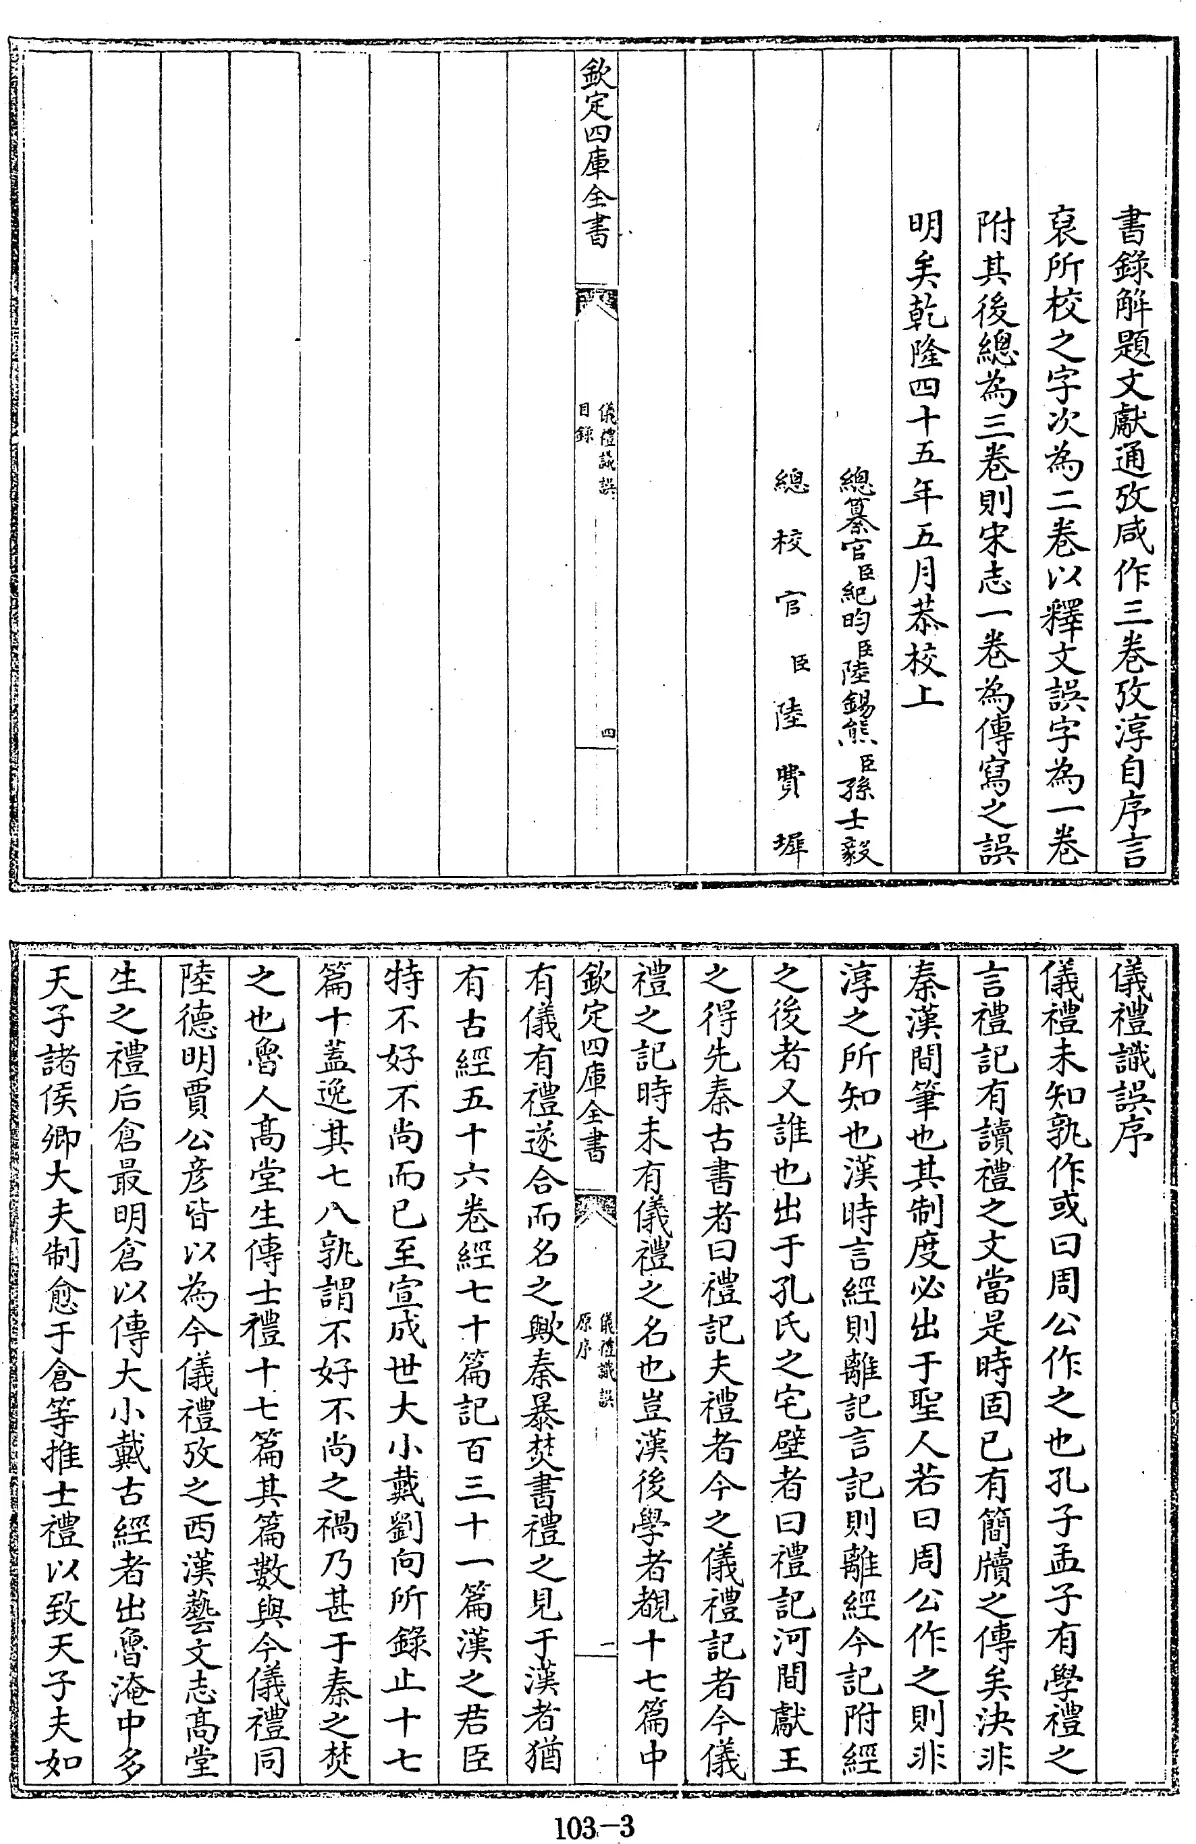 書錄解題文獻通攷咸作三卷攷淳自序言
裒所校之字次為二卷以釋文誤字為一卷
附其後總為三卷則宋志一卷為傳寫之誤
明矣乾隆四十五年五月恭校上
總纂官臣紀昀臣陸錫熊臣孫士毅
總校官臣陸費墀
欽定四庫全書
儀禮識誤
目錄
四
儀禮識誤序
儀禮未知孰作或曰周公作之也孔子孟子有學禮之
言禮記有讀禮之文當是時固已有簡牘之傳矣決非
秦漢間筆也其制度必出于聖人若曰周公作之則非
淳之所知也漢時言經則離記言記則離經今記附經
之後者又誰也出于孔氏之宅壁者曰禮記河間獻王
之得先秦古書者曰禮記夫禮者今之儀禮記者今儀
禮之記時未有儀禮之名也豈漢後學者覩十七篇中
欽定四庫全書
儀禮識誤
原序
一
有儀有禮遂合而名之歟秦暴焚書禮之見于漢者猶
有古經五十六卷經七十篇記百三十一篇漢之君臣
特不好不尚而已至宣成世大小戴劉向所錄止十七
篇十蓋逸其七八孰謂不好不尚之禍乃甚于秦之焚
之也魯人高堂生傳士禮十七篇其篇數與今儀禮同
陸德明賈公彦皆以為今儀禮攷之西漢藝文志高堂
生之禮后倉最明倉以傳大小戴古經者出魯淹中多
天子諸侯卿大夫制愈于倉等推士禮以致天子夫如
103-3